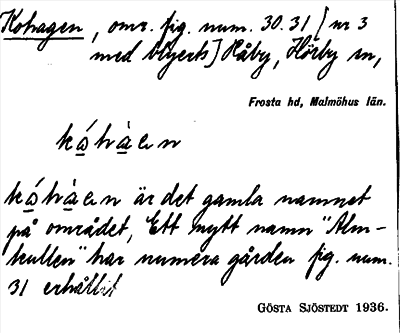 Kohagen, omr. fig. num. 30. 31 [nr 3
med blyerts] Råby, Hörby sn,
Frosta hd, Malmöhus län.
kó̱hà̱en
kó̱hà̱en är det gamla namnet
på området, Ett nytt namn "Alm-
kullen" har numera gården fig. num.
31 erhållit
GÖSTA SJÖSTEDT 1936.